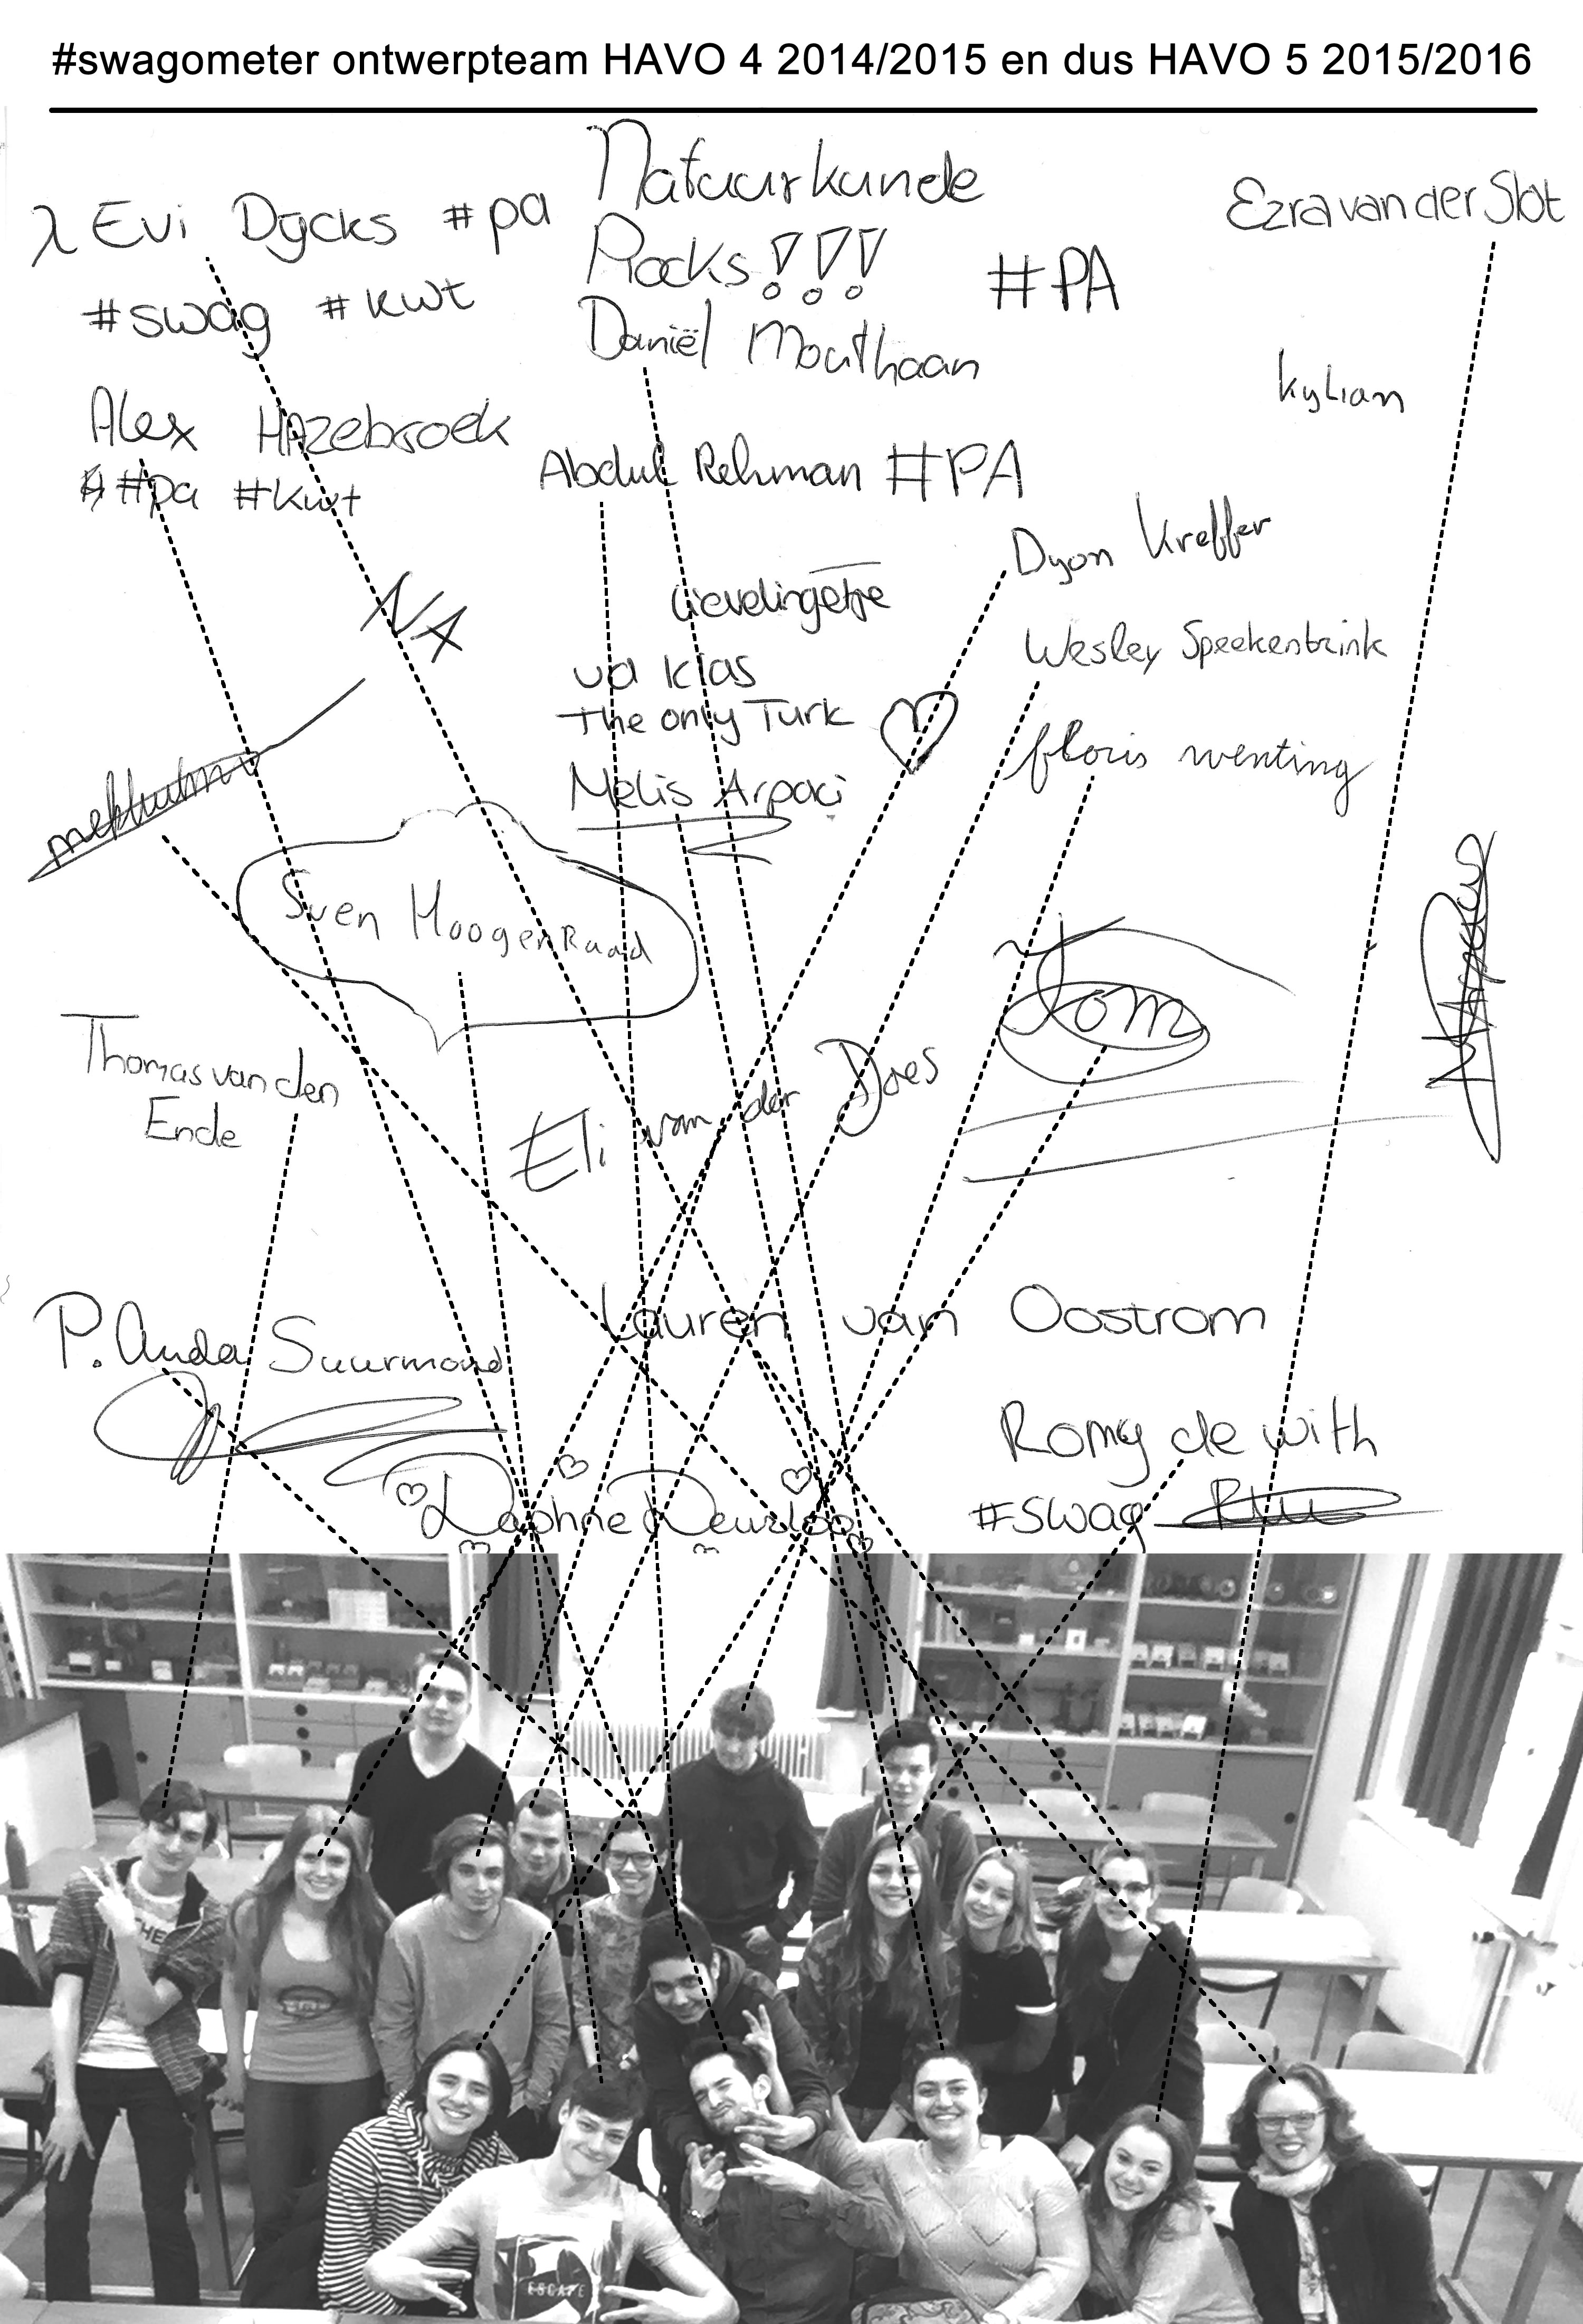 #swagometer ontwerpteam HAVO 4 2014/2015 en dus HAVO 5 2015/2016
Natuurkunde
Rocks!!!
λ Evi Dycks #pa
#swag #kwt
Ezra van der Slot
#PA
Daniël Mouthaan
Kylian
Alex HAzebroek
#pa #kwt
Abdul Rehman #PA
Dyon Kreffer
NA
lievelingetje
vd klas
The only Turk
Melis Arpaci
Wesley Speekenbrink
floris wenting
Sven HoogenRaad
Tom
Thomas van den
Ende
Eli van der Does
P. Anda Suurmond
Lauren van Oostrom
Romy de with
#swag
Daphne
ESCAPE